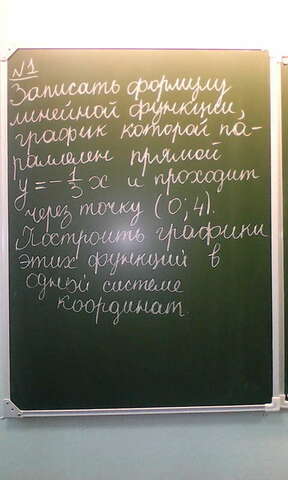 №1
Записать формулу
линейной функции,
график которой па-
раллелен прямой
y = -1/3 x и проходит
через точку (0; 4).
Построить графики
этих функций в
одной системе
координат.